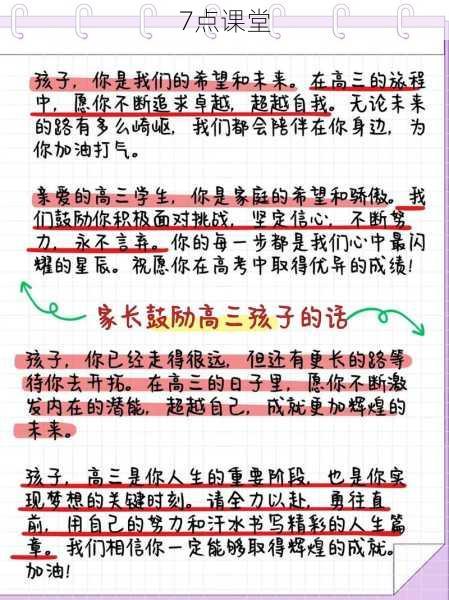 7点课堂
孩子，你是我们的希望和未来。在高三的旅程
中，愿你不断追求卓越，超越自我。无论未来
的路有多么崎岖，我们都会陪伴在你身边，为
你加油打气。
亲爱的高三学生，你是家庭的希望和骄傲。我
们鼓励你积极面对挑战，坚定信心，不断努
力，永不言弃。你的每一步都是我们心中最闪
耀的星辰。祝愿你在高考中取得优异的成绩！
家长鼓励高三孩子的话
孩子，你已经走得很远，但还有更长的路等
待你去开拓。在高三的日子里，愿你不断激
发内在的潜能，超越自己，成就更加辉煌的
未来。
孩子，高三是你人生的重要阶段，也是你实
现梦想的关键时刻。请全力以赴，勇往直
前，用自己的努力和汗水书写精彩的人生篇
章。我们相信你一定能够取得辉煌的成就。
加油！